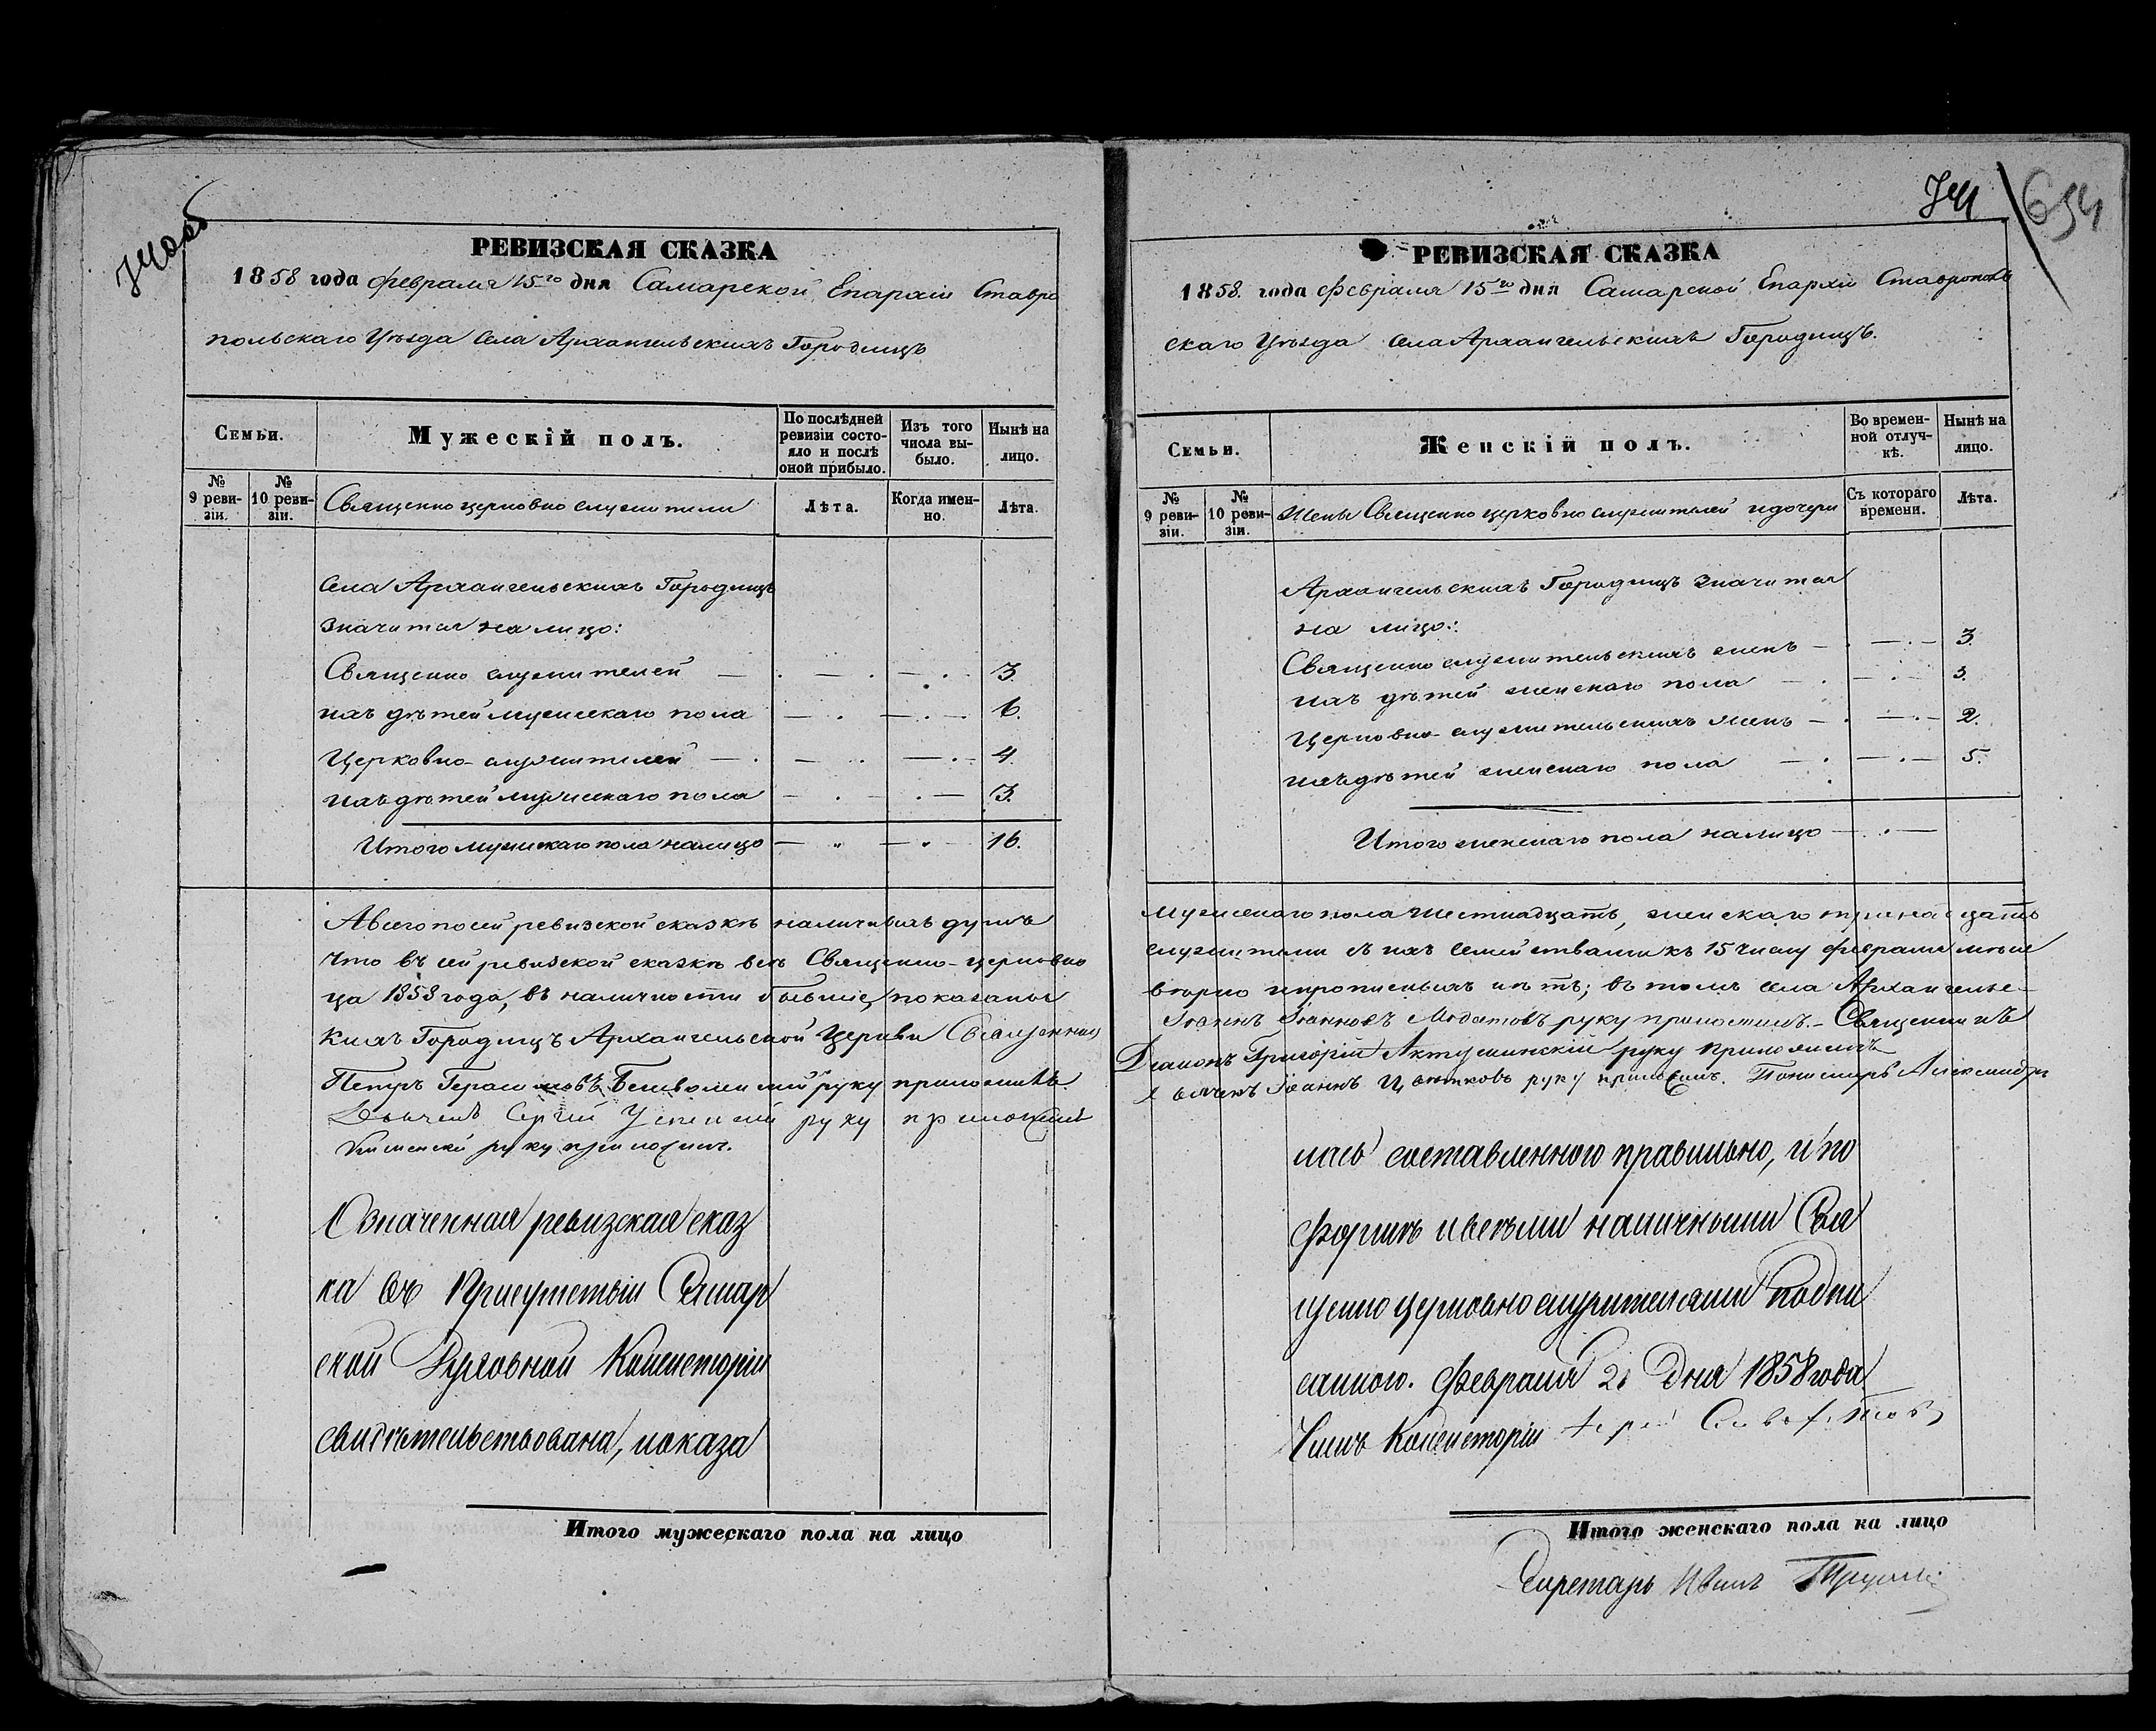 740об
РЕВИЗСКАЯ СКАЗКА
1858 года Февраля 15го дня Самарской Епархіи Ставро
польскаго Уѣзда Села Архангельскихъ Городищъ
Семьи.
Мужескій полъ.
По послѣдней ревизіи состояло и послѣ оной прибыло.
Изъ того числа выбыло.
Нынѣ на лицо.
№ 9 ревизіи.
№ 10 ревизіи.
Священно церковно служители
Лѣта.
Когда именно.
Лѣта.
Села Архангельскихъ Городищъ
значится на лицо:
Священно служителей — 3.
ихъ дѣтей мужескаго пола — 6.
Церковно-служителей — 4.
ихъ дѣтей мужескаго пола — 3.
Итого мужескаго пола налицо — 16.
А всего по сей ревизской сказкѣ наличныхъ душъ
что въ сей ревизской сказкѣ всѣ Священно-церковно
ца 1858 года, въ наличности бывшіе, показаны
кихъ Городищъ Архангельской Церкви Священникъ
Петръ Герасимовъ руку приложилъ
Сергій Успенскій руку приложилъ
руку приложилъ.
Означенная ревизская сказ
ка въ Присутствіи Самар
ской Духовной Консисторіи
свидѣтельствована, и оказа
Итого мужескаго пола на лицо
741
654
РЕВИЗСКАЯ СКАЗКА
1858. года Февраля 15го дня Самарской Епархіи Ставрополь
скаго Уѣзда Села Архангельскихъ Городищъ.
Семьи.
Женскій полъ.
Во временной отлучкѣ.
Нынѣ на лицо.
№ 9 ревизіи.
№ 10 ревизіи.
Жены Священно церковно служителей и дочери
Съ котораго времени.
Лѣта.
Архангельскихъ Городищъ значится
на лицо:
Священно служительскихъ женъ — 3.
ихъ дѣтей женскаго пола — 3.
Церковно-служительскихъ женъ — 2.
ихъ дѣтей женскаго пола — 5.
Итого женскаго пола налицо
Мужескаго пола шестнадцать, женскаго тринадцать
служители съ ихъ семействами къ 15 числу Февраля мѣся
вторно прописныхъ нѣтъ; въ томъ села Архангельс-
Іоаннъ Іоанновъ руку приложилъ. - Священникъ
Діаконъ Григорій Актушинскій руку приложилъ
Іоаннъ Цвѣтковъ руку приложилъ. Пономарь Александръ
лась составленною правильно, и по
формѣ и всѣми наличными Свя
щенно церковно служителями подпи
санною. Февраля 21 Дня 1858 года
Членъ Консисторіи
Итого женскаго пола на лицо
Секретарь Иванъ